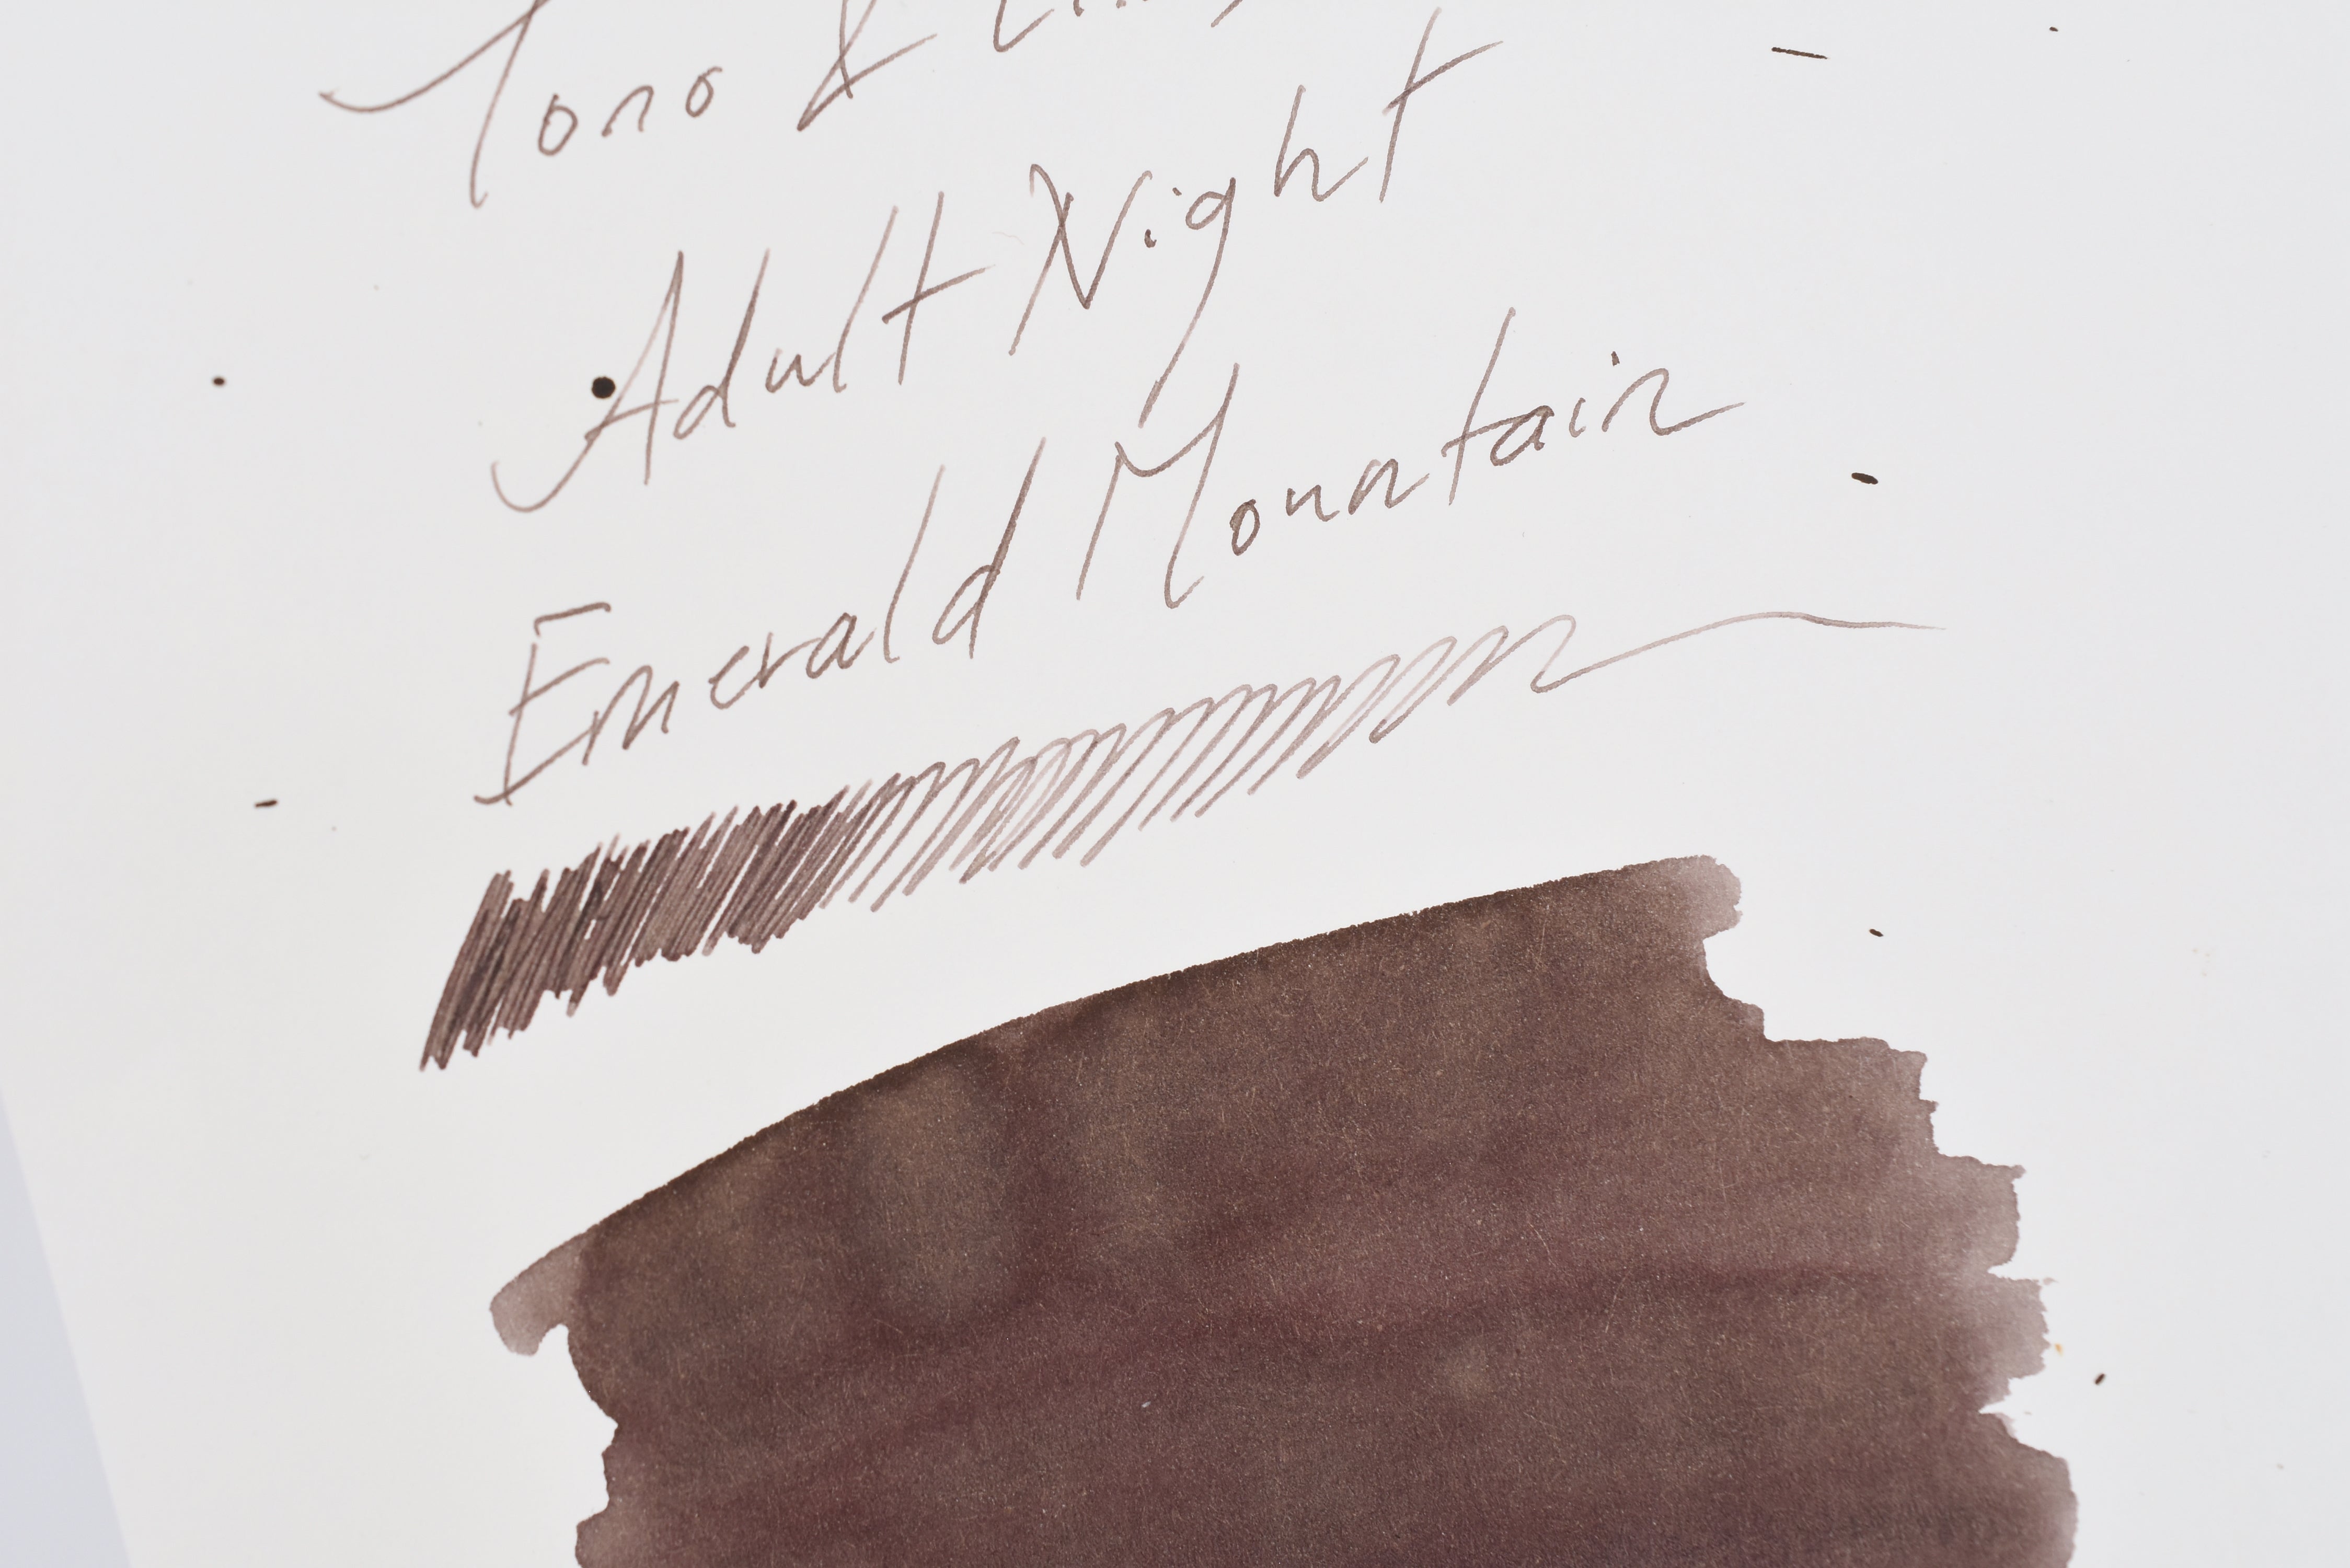 Tono &
Adult Night
Emerald Mountain